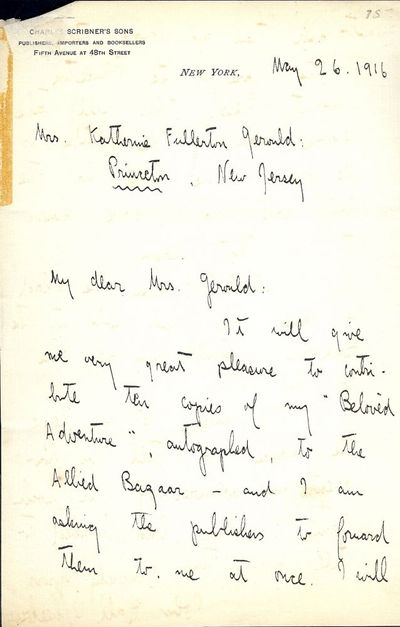 75
CHARLES SCRIBNER'S SONS
PUBLISHERS, IMPORTERS AND BOOKSELLERS
FIFTH AVENUE AT 48TH STREET
NEW YORK, May 26. 1916
Mrs. Katherine Fullerton Gerould:
Princeton, New Jersey
My dear Mrs. Gerould:
It will give
me very great pleasure to contri-
bute ten copies of my "Beloved
Adventure", autographed, to the
Allied Bazaar – and I am
asking the publishers to forward
them to me at once. I will